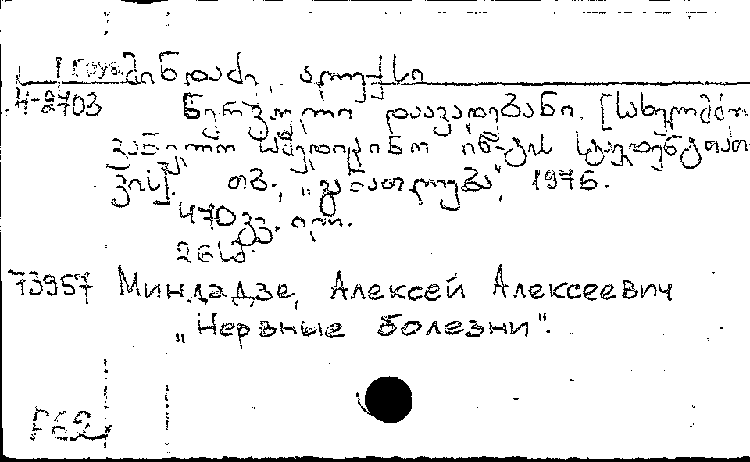 მინდაძე, ალექსი
4-2703 ნერვული დაავადებანი. [სახელმძღ
ვანელო სამედიცინო ინ-ტის სტუდენტთათ
ვის]. თბ., „განათლება", 1975.
470 გვ. ილ.
26 სმ
73957 Миндадзе, Алексей Алексеевич
„Нервные болезни".